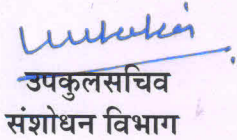 उपकुलसचिव
संशोधन विभाग